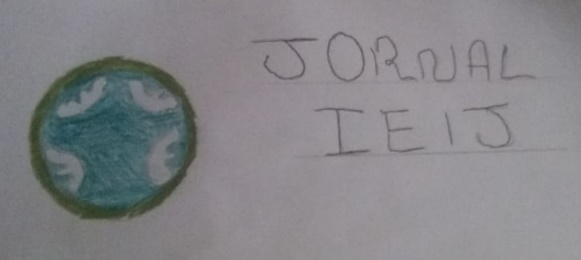 JORNAL
IEIJ